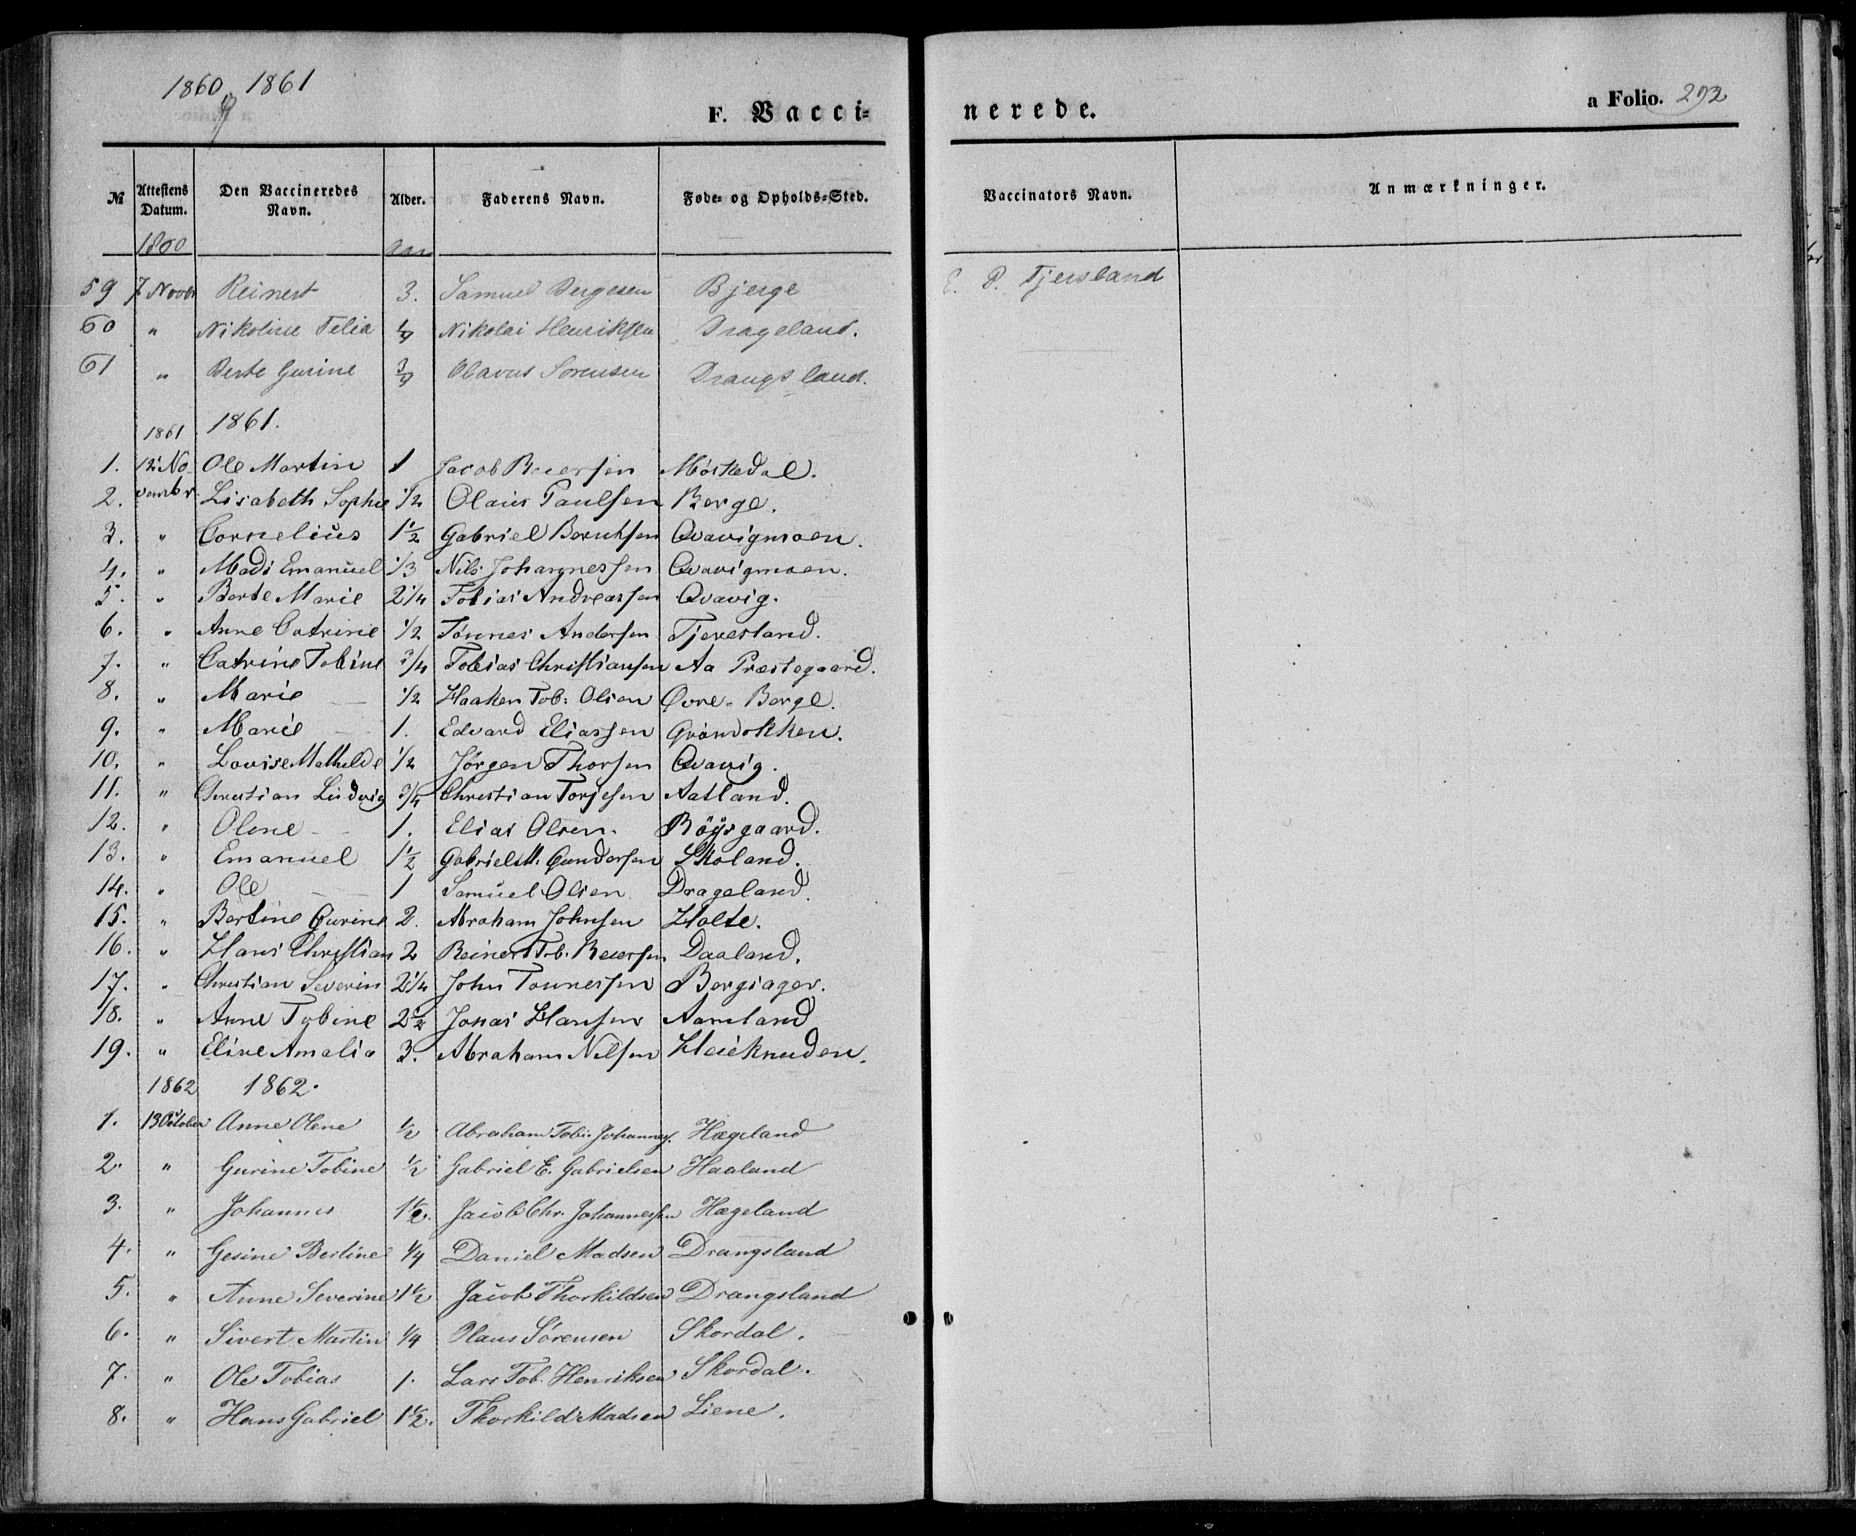 1860 og 1861
F. Vacci= nerede. a Folio. 292
№ Attestens Datum. Den Vaccineredes Navn. Alder. Faderens Navn. Føde- og Opholds-Sted. Vaccinators Navn. Anmærkninger.
1860 Aar
59 7 Novbr Reinert 3. Samuel Bergesen Bjerge P. Tjersland
60 " Nikoline Telia Nikolai Henriksen Drageland.
61 " Berte Gurine 3/4 Olavus Sørensen Drangsland.
1861 1861.
1. 12 No Ole Martin 1 Jacob Reiersen Møskedal.
2. vembr. Lisabeth Sophie 1/2 Olaus Paulsen Berge.
3. " Cornelius 1 1/2 Gabriel Berntsen Qvavigmoen.
4. " Mads Emanuel 1/3 Nils Johannessen Qvavigmoen.
5. " Berte Marie 2 1/4 Tobias Andreassen Qvavig.
6. " Anne Catrine 1/2 Tønnes Andersen Tjevesland.
7. " Catrine Tobine 3/4 Tobias Christiansen Aa Præstegaard.
8. " Marie 1/2 Haaken Tob: Olsen Øvre-Berge.
9. " Marie 1. Edvard Eliassen Grøndokken.
10. " Lovise Mathilde 1/2 Jørgen Thorsen Qvavig.
11. " Christian Ludvig 3/4 Christian Torjesen Aatland.
12. " Olene 1. Elias Olsen. Röysgaard.
13. " Emanuel 1 1/2 Gabriel M. Gundersen Skoland.
14. " Ole 1 Samuel Olsen Drageland.
15. " Bertine Gurine 2. Abraham Johnsen Holte.
16. " Hans Christian 2 Reinert Tob. Reiersen Daaland.
17. " Christian Severin 2 1/4 John Tønnessen Bergsager.
18. " Anne Tobine 2 1/2 Jonas Hansen Aamland
19. " Eline Amalia 3. Abraham Nilsen Heieknuden.
1862 1862.
1. 13 October Anne Olene 1/2 Abraham Tobi. Johannes. Hægeland
2. " Gurine Tobine 1/2 Gabriel E. Gabrielsen Haaland
3. " Johannes 1 1/2. Jacob Chr. Johannessen Hægeland
4. " Gesine Bertine 1/4 Daniel Madsen Drangsland
5. " Anne Severine 1 1/2 Jacob Thorkildsen Drangsland
6. " Sivert Martin 1/4 Olaus Sørensen Skordal.
7. " Ole Tobias 1. Lars Tob. Henriksen Skordal.
8. " Hans Gabriel 1 1/2. Thorkild Madsen Liene.